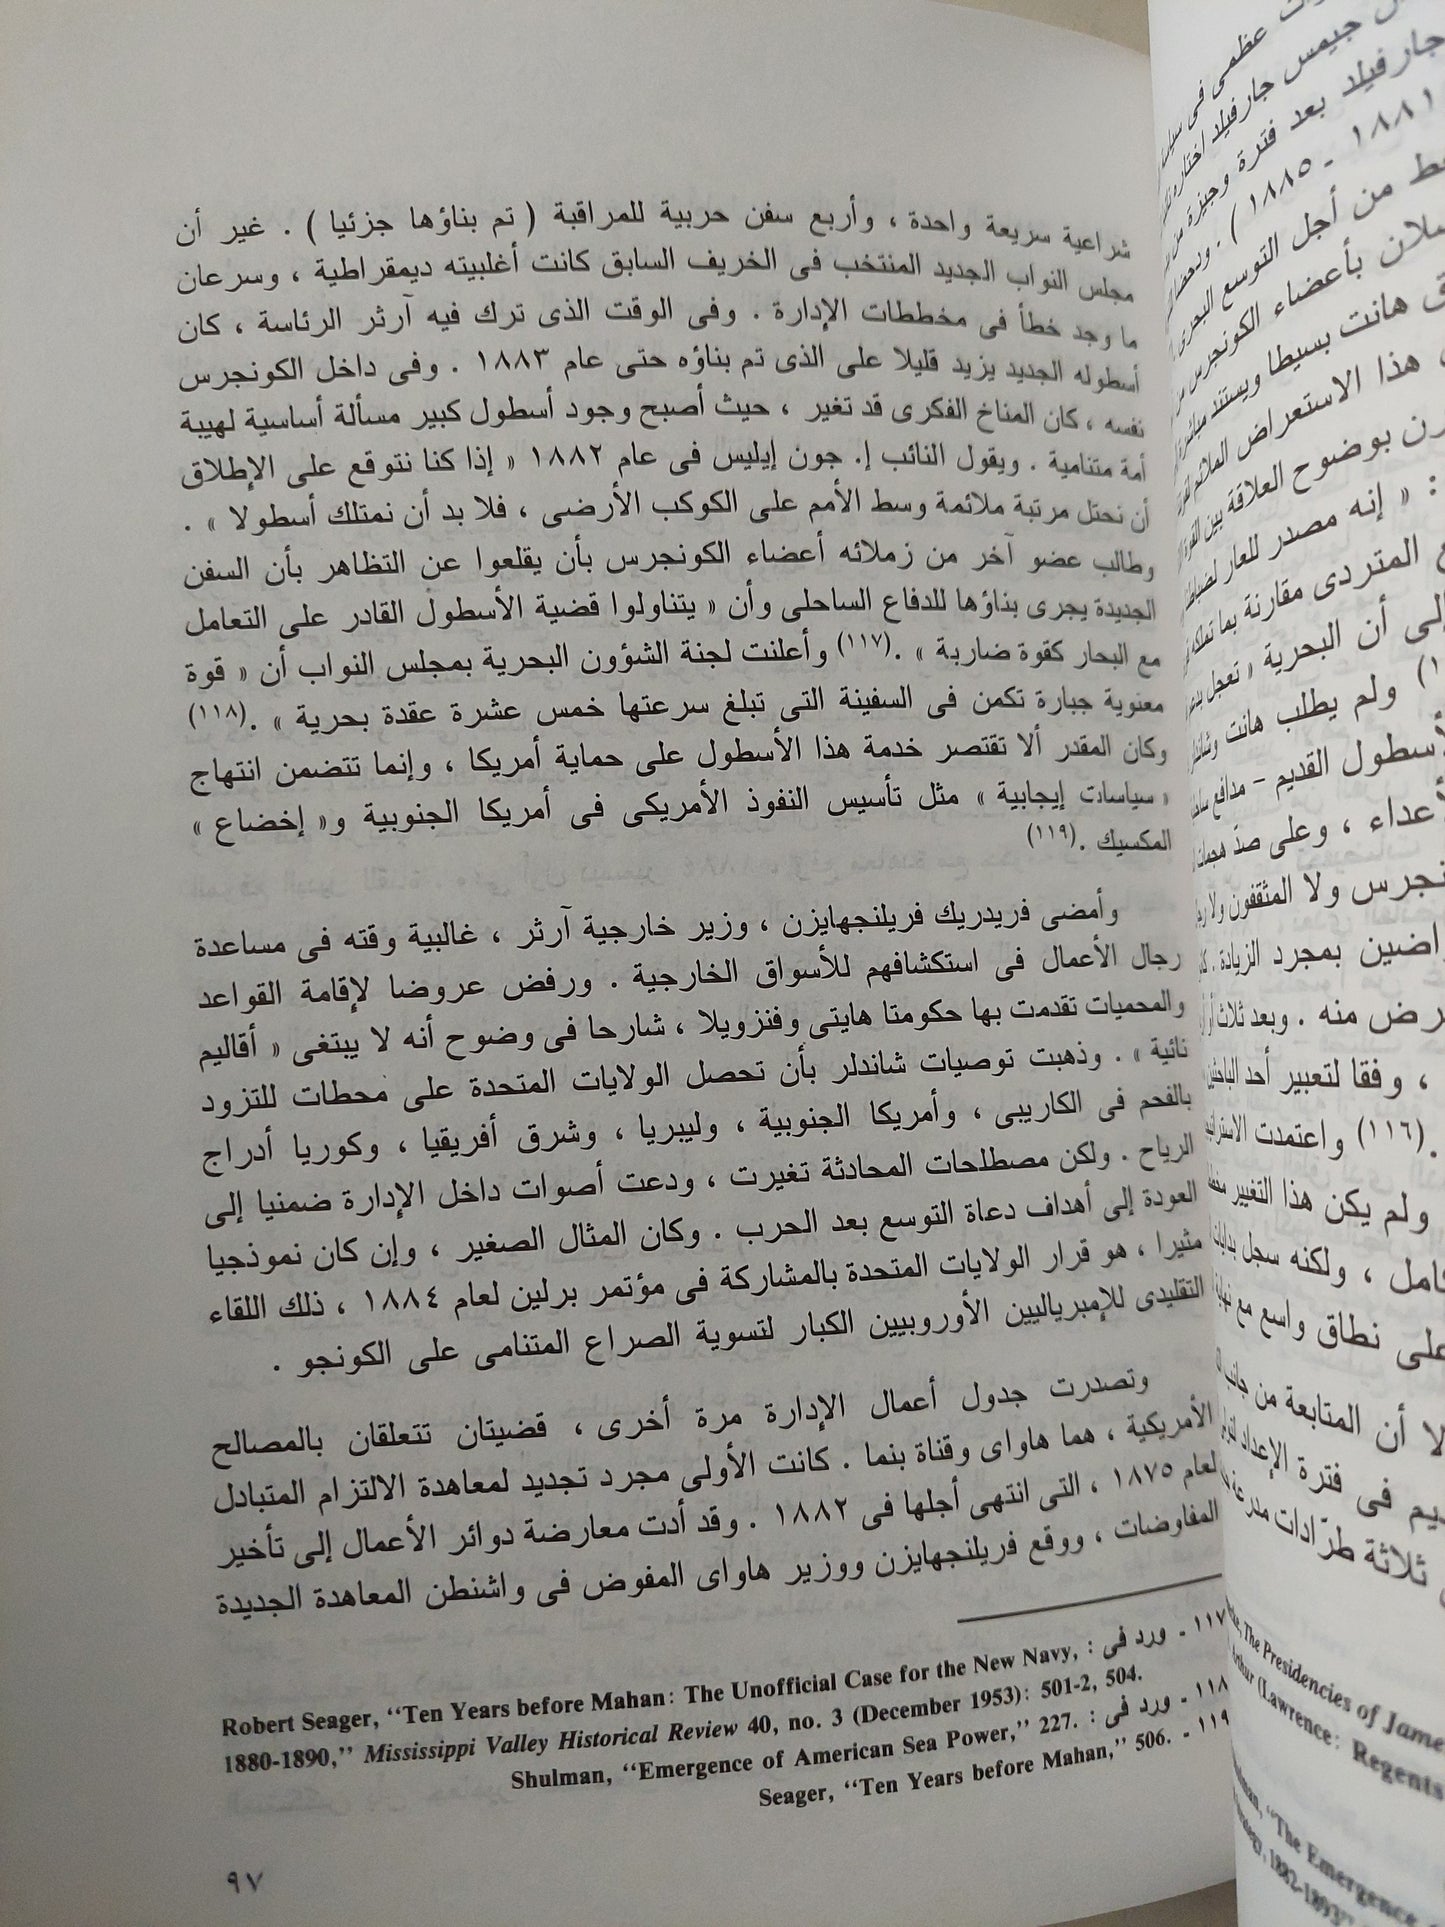 شراعية سريعة واحدة ، وأربع سفن حربية للمراقبة ( تم بناؤها جزئيا ) . غير أن
مجلس النواب الجديد المنتخب فى الخريف السابق كانت أغلبيته ديمقراطية ، وسرعان
ما وجد خطأ فى مخططات الإدارة . وفى الوقت الذى ترك فيه آرثر الرئاسة ، كان
أسطوله الجديد يزيد قليلا على الذى تم بناؤه حتى عام ١٨٨٣ . وفى داخل الكونجرس
نفسه ، كان المناخ الفكرى قد تغير ، حيث أصبح وجود أسطول كبير مسألة أساسية لهيبة
أمة متنامية . ويقول النائب إ. جون إيليس فى عام ١٨٨٢ « إذا كنا نتوقع على الإطلاق
أن نحتل مرتبة ملائمة وسط الأمم على الكوكب الأرضى ، فلا بد أن نمتلك أسطولا » .
وطالب عضو آخر من زملائه أعضاء الكونجرس بأن يقلعوا عن التظاهر بأن السفن
الجديدة يجرى بناؤها للدفاع الساحلى وأن « يتناولوا قضية الأسطول القادر على التعامل
مع البحار كقوة ضاربة » .(١١٧) وأعلنت لجنة الشؤون البحرية بمجلس النواب أن « قوة
معنوية جبارة تكمن فى السفينة التى تبلغ سرعتها خمس عشرة عقدة بحرية » .(١١٨)
وكان المقدر ألا تقتصر خدمة هذا الأسطول على حماية أمريكا ، وإنما تتضمن انتهاج
« سياسات إيجابية » مثل تأسيس النفوذ الأمريكى فى أمريكا الجنوبية و« إخضاع »
المكسيك .(١١٩)
وأمضى فريدريك فريلنجهايزن ، وزير خارجية آرثر ، غالبية وقته فى مساعدة
رجال الأعمال فى استكشافهم للأسواق الخارجية . ورفض عروضا لإقامة القواعد
والمحميات تقدمت بها حكومتا هايتى وفنزويلا ، شارحا فى وضوح أنه لا يبتغى « أقاليم
نائية » . وذهبت توصيات شاندلر بأن تحصل الولايات المتحدة على محطات للتزود
بالفحم فى الكاريبى ، وأمريكا الجنوبية ، وليبريا ، وشرق أفريقيا ، وكوريا أدراج
الرياح . ولكن مصطلحات المحادثة تغيرت ، ودعت أصوات داخل الإدارة ضمنيا إلى
العودة إلى أهداف دعاة التوسع بعد الحرب . وكان المثال الصغير ، وإن كان نموذجيا
مثيرا ، هو قرار الولايات المتحدة بالمشاركة فى مؤتمر برلين لعام ١٨٨٤ ، ذلك اللقاء
التقليدى للإمبرياليين الأوروبيين الكبار لتسوية الصراع المتنامى على الكونجو .
وتصدرت جدول أعمال الإدارة مرة أخرى ، قضيتان تتعلقان بالمصالح
الأمريكية ، هما هاواى وقناة بنما . كانت الأولى مجرد تجديد لمعاهدة الالتزام المتبادل
لعام ١٨٧٥ ، التى انتهى أجلها فى ١٨٨٢ . وقد أدت معارضة دوائر الأعمال إلى تأخير
المفاوضات ، ووقع فريلنجهايزن ووزير هاواى المفوض فى واشنطن المعاهدة الجديدة
١١٧ - ورد فى :
Robert Seager, “Ten Years before Mahan: The Unofficial Case for the New Navy,
1880-1890,” Mississippi Valley Historical Review 40, no. 3 (December 1953): 501-2, 504.
١١٨ - ورد فى : Shulman, “Emergence of American Sea Power,” 227.
١١٩ - Seager, “Ten Years before Mahan,” 506.
٩٧
عظمى فى
جيمس جارفيلد اختاره
جارفيلد بعد فترة وجيزة من
١٨٨١ - ١٨٨٥ ) .
من أجل التوسع البحرى
بأعضاء الكونجرس
هانت بسيطا ويستند
هذا الاستعراض الملائم
بوضوح العلاقة بين القوة
: « إنه مصدر للعار
المتردى مقارنة بما تملكه
أن البحرية « تعجل
ولم يطلب هانت
القديم – مدافع
، وعلى صدّ هجمات
ولا المثقفون ولا
بمجرد الزيادة .
منه . وبعد ثلاث
، وفقا لتعبير أحد الباحثين
.(١١٦) واعتمدت
ولم يكن هذا التغيير
، ولكنه سجل بدايات
على نطاق واسع مع
أن المتابعة من جانب
فى فترة الإعداد
ثلاثة طرّادات
The Presidencies of
Arthur (Lawrence: Regents
“The Emergence
1882-1893”